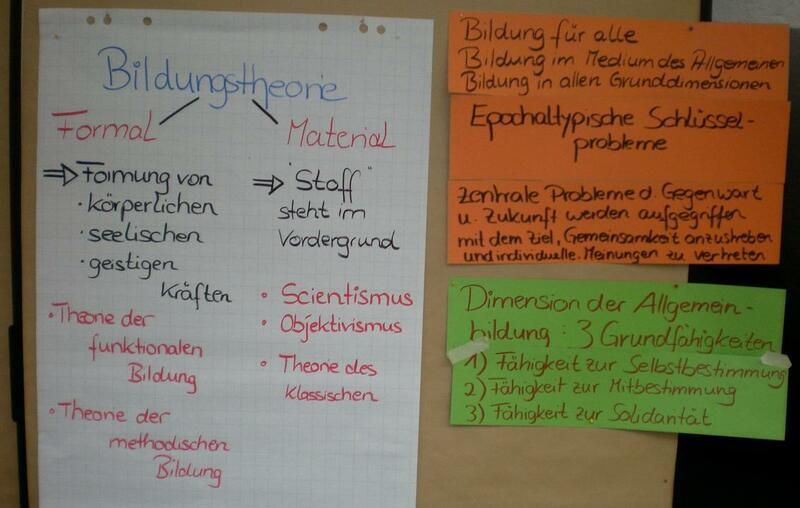 Bildungstheorie
Formal
⇒ Formung von
· körperlichen
· seelischen
· geistigen
Kräften
• Theorie der
funktionalen
Bildung
• Theorie der
methodischen
Bildung
Material
⇒ "Stoff"
steht im
Vordergrund
• Scientismus
• Objektivismus
• Theorie des
klassischen
Bildung für alle
Bildung im Medium des Allgemeinen
Bildung in allen Grunddimensionen
Epochaltypische Schlüssel-
probleme
Zentrale Probleme d. Gegenwart
u. Zukunft werden aufgegriffen
mit dem Ziel, Gemeinsamkeit anzustreben
und individuelle Meinungen zu vertreten
Dimension der Allgemein-
bildung: 3 Grundfähigkeiten
1) Fähigkeit zur Selbstbestimmung
2) Fähigkeit zur Mitbestimmung
3) Fähigkeit zur Solidarität